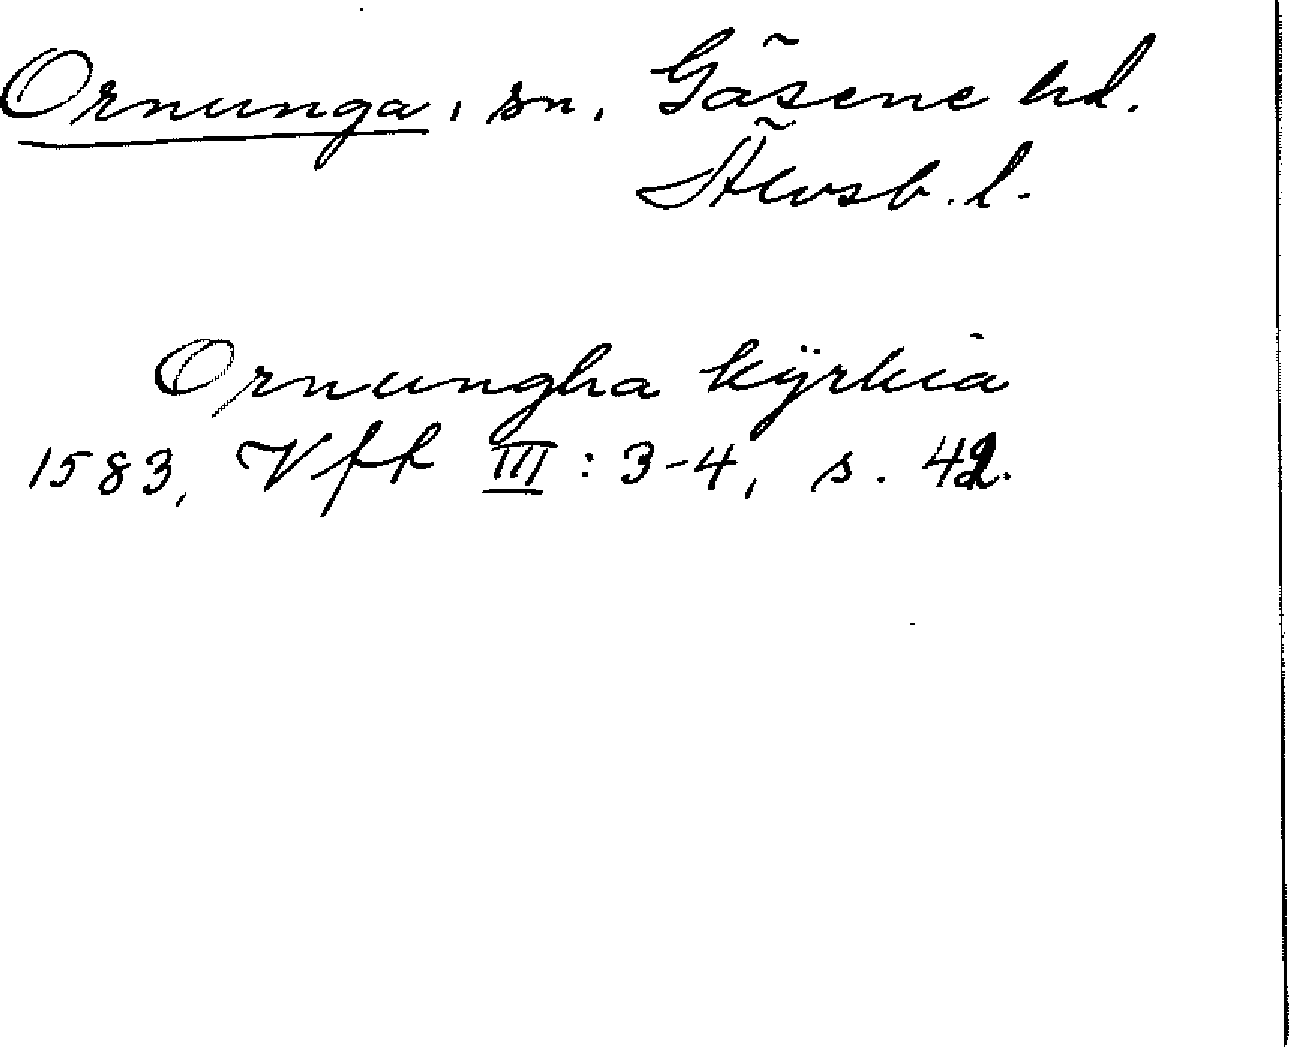 Ornunga, sn, Gäsene hd.
Älvsb. l.
Ornungha kÿrkia
1583, Vfft III: 3-4, s. 42.